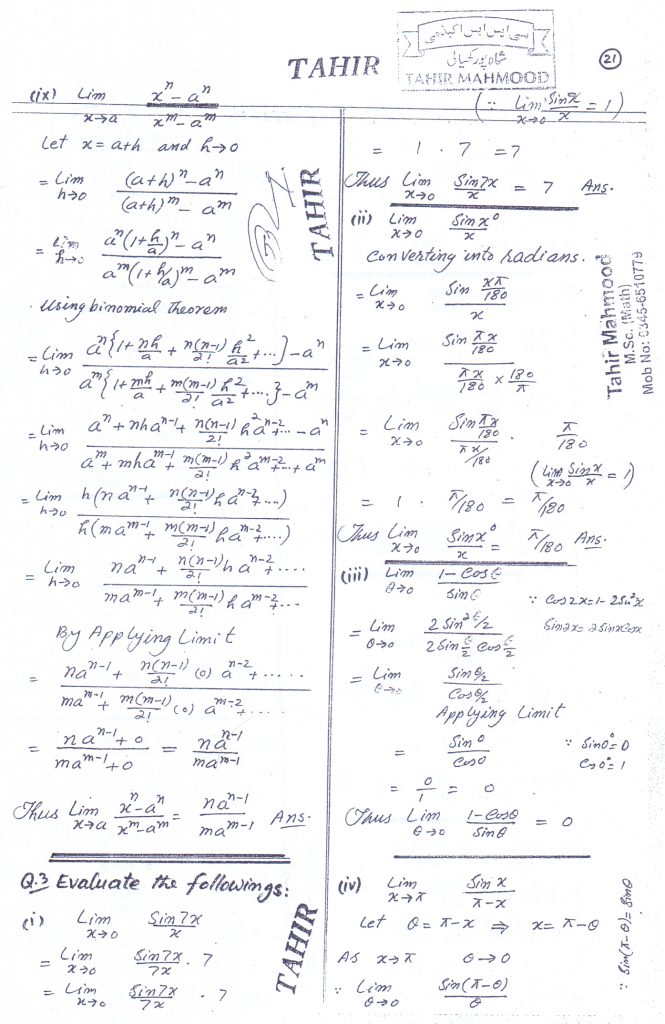 TAHIR
سی ایس ایس اکیڈمی
شاہ پور کھیالی
TAHIR MAHMOOD
(21)
(ix) Lim x→a (x^n - a^n)/(x^m - a^m)
Let x = a+h and h→0
= Lim h→0 ((a+h)^n - a^n)/((a+h)^m - a^m)
= Lim h→0 (a^n(1+h/a)^n - a^n)/(a^m(1+h/a)^m - a^m)
Using binomial theorem
= Lim h→0 (a^n{1 + nh/a + n(n-1)/2! h^2/a^2 + ...} - a^n)/(a^m{1 + mh/a + m(m-1)/2! h^2/a^2 + ....} - a^m)
= Lim h→0 (a^n + nha^(n-1) + n(n-1)/2! h^2 a^(n-2) + ... - a^n)/(a^m + mha^(m-1) + m(m-1)/2! h^2 a^(m-2) + ... + a^m)
= Lim h→0 h(na^(n-1) + n(n-1)/2! ha^(n-2) + ...)/h(ma^(m-1) + m(m-1)/2! ha^(m-2) + ....)
= Lim h→0 (na^(n-1) + n(n-1)/2! ha^(n-2) + .....)/(ma^(m-1) + m(m-1)/2! ha^(m-2) + ....)
By Applying Limit
= (na^(n-1) + n(n-1)/2! (0) a^(n-2) + ......)/(ma^(m-1) + m(m-1)/2! (0) a^(m-2) + ....)
= (na^(n-1) + 0)/(ma^(m-1) + 0) = na^(n-1)/ma^(m-1)
Thus Lim x→a (x^n - a^n)/(x^m - a^m) = na^(n-1)/ma^(m-1) Ans.
TAHIR
Q.3 Evaluate the followings:
(i) Lim x→0 Sin7x/x
= Lim x→0 Sin7x/7x . 7
= Lim x→0 Sin7x/7x . 7
TAHIR
(∵ Lim x→0 Sinx/x = 1)
= 1 . 7 = 7
Thus Lim x→0 Sin7x/x = 7 Ans.
(ii) Lim x→0 Sin x°/x
Converting into radians.
= Lim x→0 Sin (xπ/180)/x
= Lim x→0 Sin (πx/180)/(πx/180 × 180/π)
= Lim x→0 Sin (πx/180)/(πx/180) . π/180
(Lim x→0 Sinx/x = 1)
= 1 . π/180 = π/180
Thus Lim x→0 Sinx°/x = π/180 Ans.
Tahir Mahmood
M.Sc. (Math)
Mob No: 0345-6510779
(iii) Lim θ→0 (1 - Cosθ)/Sinθ
∵ Cos2x = 1 - 2Sin²x
Sin2x = 2SinxCosx
= Lim θ→0 2Sin²θ/2 / 2Sin θ/2 Cos θ/2
= Lim θ→0 Sinθ/2 / Cosθ/2
Applying Limit
= Sin0/Cos0 ∵ Sin0° = 0
Cos0° = 1
= 0/1 = 0
Thus Lim θ→0 (1 - Cosθ)/Sinθ = 0
(iv) Lim x→π Sin x/(π-x)
Let θ = π-x ⇒ x = π-θ
As x→π θ→0
∵ Lim θ→0 Sin(π-θ)/θ
∵ Sin(π-θ) = Sinθ